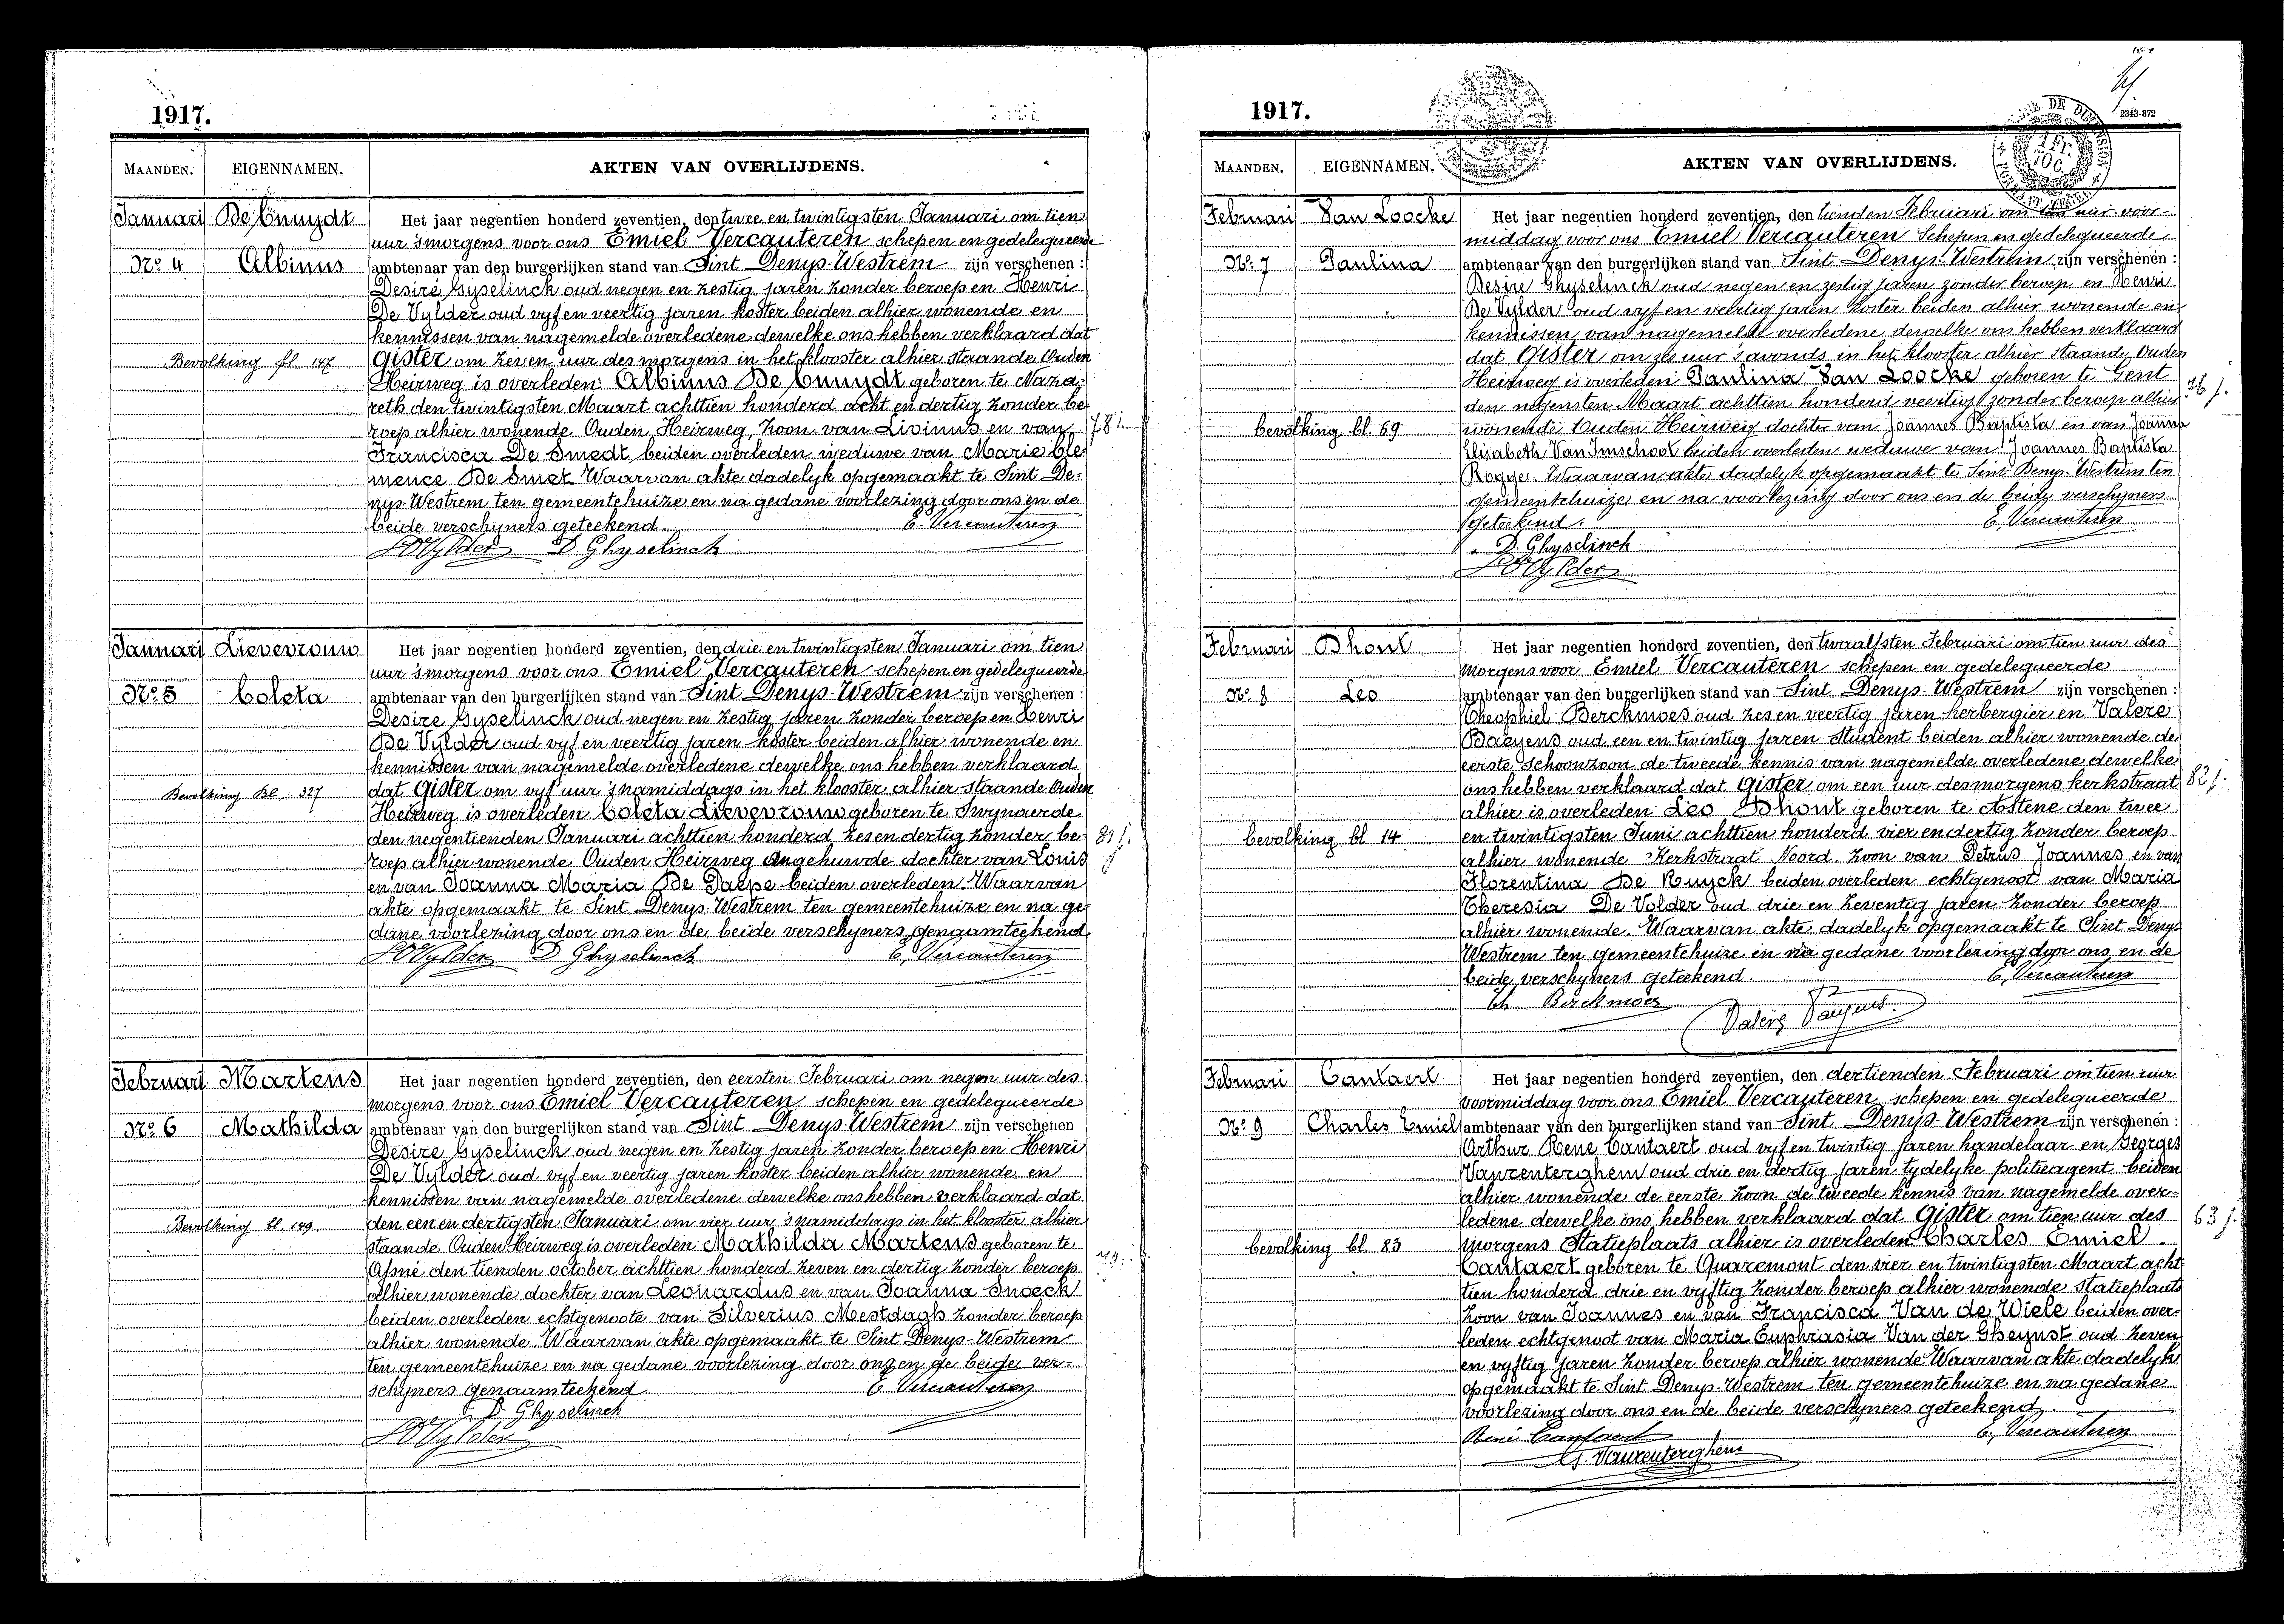 1917.
MAANDEN. EIGENNAMEN. AKTEN VAN OVERLIJDENS.
Januari De Cnuydt Het jaar negentien honderd zeventien, den twee en twintigsten Januari om tien
uur 'smorgens voor ons Emiel Vercauteren schepen en gedelegueerde
No. 4 Albinus ambtenaar van den burgerlijken stand van Sint Denys-Westrem zijn verschenen :
Desiré Gyselinck oud negen en zestig jaren zonder beroep en Henri
De Vylder oud vyf en veertig jaren koster beiden alhier wonende en
kennissen van nagemelde overledene dewelke ons hebben verklaard dat
Bevolking bl 147 Gister om zeven uur des morgens in het klooster alhier staande Ouden
Heirweg is overleden: Albinus De Cnuydt geboren te Naza-
reth den twintigsten Maart achttien honderd acht en dertig zonder be-
roep alhier wonende Ouden Heirweg, zoon van Livinus en van 78 j.
Francisca De Smedt beiden overleden weduwe van Marie Cle-
mence De Smet Waarvan akte dadelyk opgemaakt te Sint De-
nys-Westrem ten gemeentehuize en na gedane voorlezing door ons en de
beide verschyners geteekend. E. Vercauteren
H De Vylder D. Ghyselinck
Januari Lievevrouw Het jaar negentien honderd zeventien, den drie en twintigsten Januari om tien
uur 'smorgens voor ons Emiel Vercauteren schepen en gedelegueerde
No. 5 Coleta ambtenaar van den burgerlijken stand van Sint Denys-Westrem zijn verschenen :
Desire Gyselinck oud negen en zestig jaren zonder beroep en Henri
De Vylder oud vyf en veertig jaren koster beiden alhier wonende en
kennissen van nagemelde overledene dewelke ons hebben verklaard
Bevolking Bl. 327 dat Gister om vyf uur 'snamiddags in het klooster alhier staande Ouden
Heirweg is overleden Coleta Lievevrouw geboren te Swynaerde
den negentienden Januari achttien honderd zes en dertig zonder be- 81 j.
roep alhier wonende Ouden Heirweg ongehuwde dochter van Louis
en van Joanna Maria De Paepe beiden overleden. Waarvan
akte opgemaakt te Sint Denys-Westrem ten gemeentehuize en na ge-
dane voorlezing door ons en de beide verschyners genaamteekend
H De Vylder D Ghyselinck E. Vercauteren
Februari Martens Het jaar negentien honderd zeventien, den eersten Februari om negen uur des
morgens voor ons Emiel Vercauteren schepen en gedelegueerde
No. 6 Mathilda ambtenaar van den burgerlijken stand van Sint Denys-Westrem zijn verschenen
Desire Gyselinck oud negen en zestig jaren zonder beroep en Henri
De Vylder oud vyf en veertig jaren koster beiden alhier wonende en
kennissen van nagemelde overledene dewelke ons hebben verklaard dat
Bevolking bl. 149 den een en dertigsten Januari om vier uur 'snamiddags in het klooster alhier
staande Ouden Heirweg is overleden Mathilda Martens geboren te
Afsné den tienden october achttien honderd zeven en dertig zonder beroep 79 j.
alhier wonende dochter van Leonardus en van Joanna Snoeck
beiden overleden echtgenoote van Silverius Mestdagh zonder beroep
alhier wonende. Waarvan akte opgemaakt te Sint Denys-Westrem
ten gemeentehuize en na gedane voorlezing door ons en de beide ver-
schyners genaamteekend E Vercauteren
D Ghyselinck
H De Vylder
1917.
2343-372
MAANDEN. EIGENNAMEN. AKTEN VAN OVERLIJDENS.
Februari Van Loocke Het jaar negentien honderd zeventien, den tienden Februari om tien uur voor-
middag voor ons Emiel Vercauteren Schepen en gedelegueerde
No. 7 Paulina ambtenaar van den burgerlijken stand van Sint Denys-Westrem zijn verschenen :
Desire Ghyselinck oud negen en zestig jaren zonder beroep en Henri
De Vylder oud vyf en veertig jaren koster beiden alhier wonende en
kennissen van nagemelde overledene dewelke ons hebben verklaard
dat Gister om zes uur 's avonds in het klooster alhier staande Ouden
Heirweg is overleden Paulina Van Loocke geboren te Gent
den negensten Maart achttien honderd veertig zonder beroep alhier 76 j.
bevolking bl. 69 wonende Ouden Heirweg dochter van Joannes Baptista en van Joanna
Elisabeth Van Imschoot beiden overleden weduwe van Joannes Baptista
Rogge. Waarvan akte dadelyk opgemaakt te Sint Denys-Westrem ten
gemeentehuize en na voorlezing door ons en de beide verschyners
geteekend. E. Vercauteren
D. Ghyselinck
H De Vylder
Februari Dhont Het jaar negentien honderd zeventien, den twaalfsten Februari om tien uur des
morgens voor Emiel Vercauteren schepen en gedelegueerde
No. 8 Leo ambtenaar van den burgerlijken stand van Sint Denys-Westrem zijn verschenen :
Theophiel Berckmoes oud zes en veertig jaren herbergier en Valere
Baeyens oud een en twintig jaren student beiden alhier wonende de
eerste schoonzoon de tweede kennis van nagemelde overledene dewelke
ons hebben verklaard dat Gister om een uur des morgens kerkstraat 82 j.
alhier is overleden Leo Dhont geboren te Astene den twee
bevolking bl 14 en twintigsten Juni achttien honderd vier en dertig zonder beroep
alhier wonende Kerkstraat Noord zoon van Petrus Joannes en van
Florentina De Ruyck beiden overleden echtgenoot van Maria
Theresia De Volder oud drie en zeventig jaren zonder beroep
alhier wonende. Waarvan akte dadelyk opgemaakt te Sint Denys
Westrem ten gemeentehuize en na gedane voorlezing door ons en de
beide verschyners geteekend. E. Vercauteren
Th Berckmoes
Valère
Februari Cantaert Het jaar negentien honderd zeventien, den dertienden Februari om tien uur
voormiddag voor ons Emiel Vercauteren schepen en gedelegueerde
No. 9 Charles Emiel ambtenaar van den burgerlijken stand van Sint Denys-Westrem zijn verschenen :
Arthur Rene Cantaert oud vyf en twintig jaren handelaar en Georges
Vaurenterghem oud drie en dertig jaren tydelyke politieagent beiden
alhier wonende de eerste zoon de tweede kennis van nagemelde over-
ledene dewelke ons hebben verklaard dat Gister om tien uur des 63 j.
bevolking bl 83 morgens Statieplaats alhier is overleden Charles Emiel
Cantaert geboren te Quaremont den vier en twintigsten Maart acht
tien honderd drie en vyftig zonder beroep alhier wonende statieplaats
zoon van Joannes en van Francisca Van de Wiele beiden over-
leden echtgenoot van Maria Euphrasia Van der Gheynst oud zeven
en vyftig jaren zonder beroep alhier wonende Waarvan akte dadelyk
opgemaakt te Sint Denys-Westrem ten gemeentehuize en na gedane
voorlezing door ons en de beide verschyners geteekend.
René Cantaert E. Vercauteren
G. Vaurenterghem